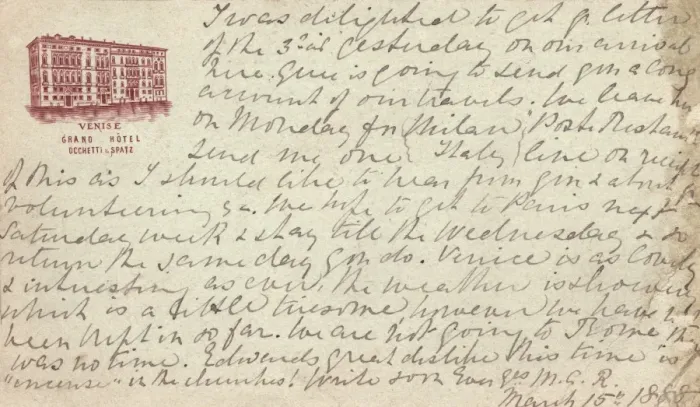 I was delighted to get yr letter
of the 3rd yesterday on our arrival
here. is going to send you a long
account of our travels. We leave
on Monday for Milan, Poste Restante
send me one Italy line on receipt
of this as I should like to hear from you & about
volunteering &c. We hope to get to Paris next
Saturday week & stay till the Wednesday & so
return the same day you do. Venice is as lovely
& interesting as ever, the weather is showery
which is a little tiresome, however we have
been kept in so far. We are not going to Rome
was no time. Edwards great dislike this time is
"incense" in the churches! Write soon Ever yrs M. G. R.
March 15th
VENISE
GRAND HÔTEL
UCCHETTI & SPATZ